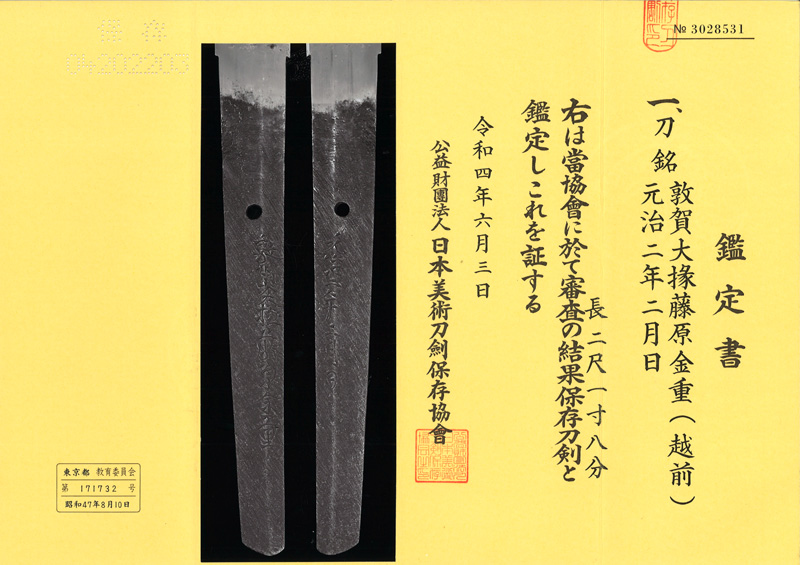 № 3028531
鑑定書
一、刀 銘 敦賀大掾藤原金重(越前)
元治二年二月日
長 二尺一寸八分
右は當協會に於て審査の結果保存刀剣と
鑑定しこれを証する
令和四年六月三日
公益財團法人 日本美術刀劍保存協會
保存
東京都 教育委員会
第 171732 号
昭和47年8月10日